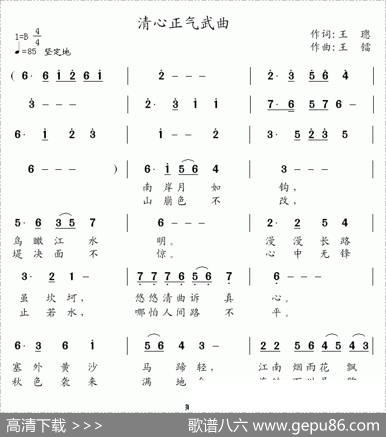 清心正气武曲
1=B 4/4
♩=85 坚定地
作词:王 璁
作曲:王 镭
( 6· 6 i 2 6 i | 2 - - - | 2· 3 5 6 4 |
3 - - - | 2 - - - | 7· 6 5 7 6 |
6· i 2 3 | 2 - - - | 3· 3 2 5 |
6 - - - ) | 6· i 5 6 4 | 3 - - - |
南 岸 月 如 钩,
山 崩 色 不 改,
5· 6 3 5 7 | 6 - - - | 2· 2 5 4 |
鸟 瞰 江 水 明。 漫 漫 长 路
堤 决 面 不 惊。 心 中 无 锋
3· 2 1 - | 7 7 7 6 7 5 6 | 6 - - - |
虽 坎 坷, 悠 悠 清 曲 诉 真 心。
止 若 水, 哪 怕 人 间 路 不 平。
6· 3 6 i | 5 4 6 - | 2 2 5 6 4 5 4 3 |
塞 外 黄 沙 马 蹄 轻, 江 南 烟 雨 花 飘
秋 色 袭 来 满 地
高清下载 >>>
歌谱八六 www.gepu86.com